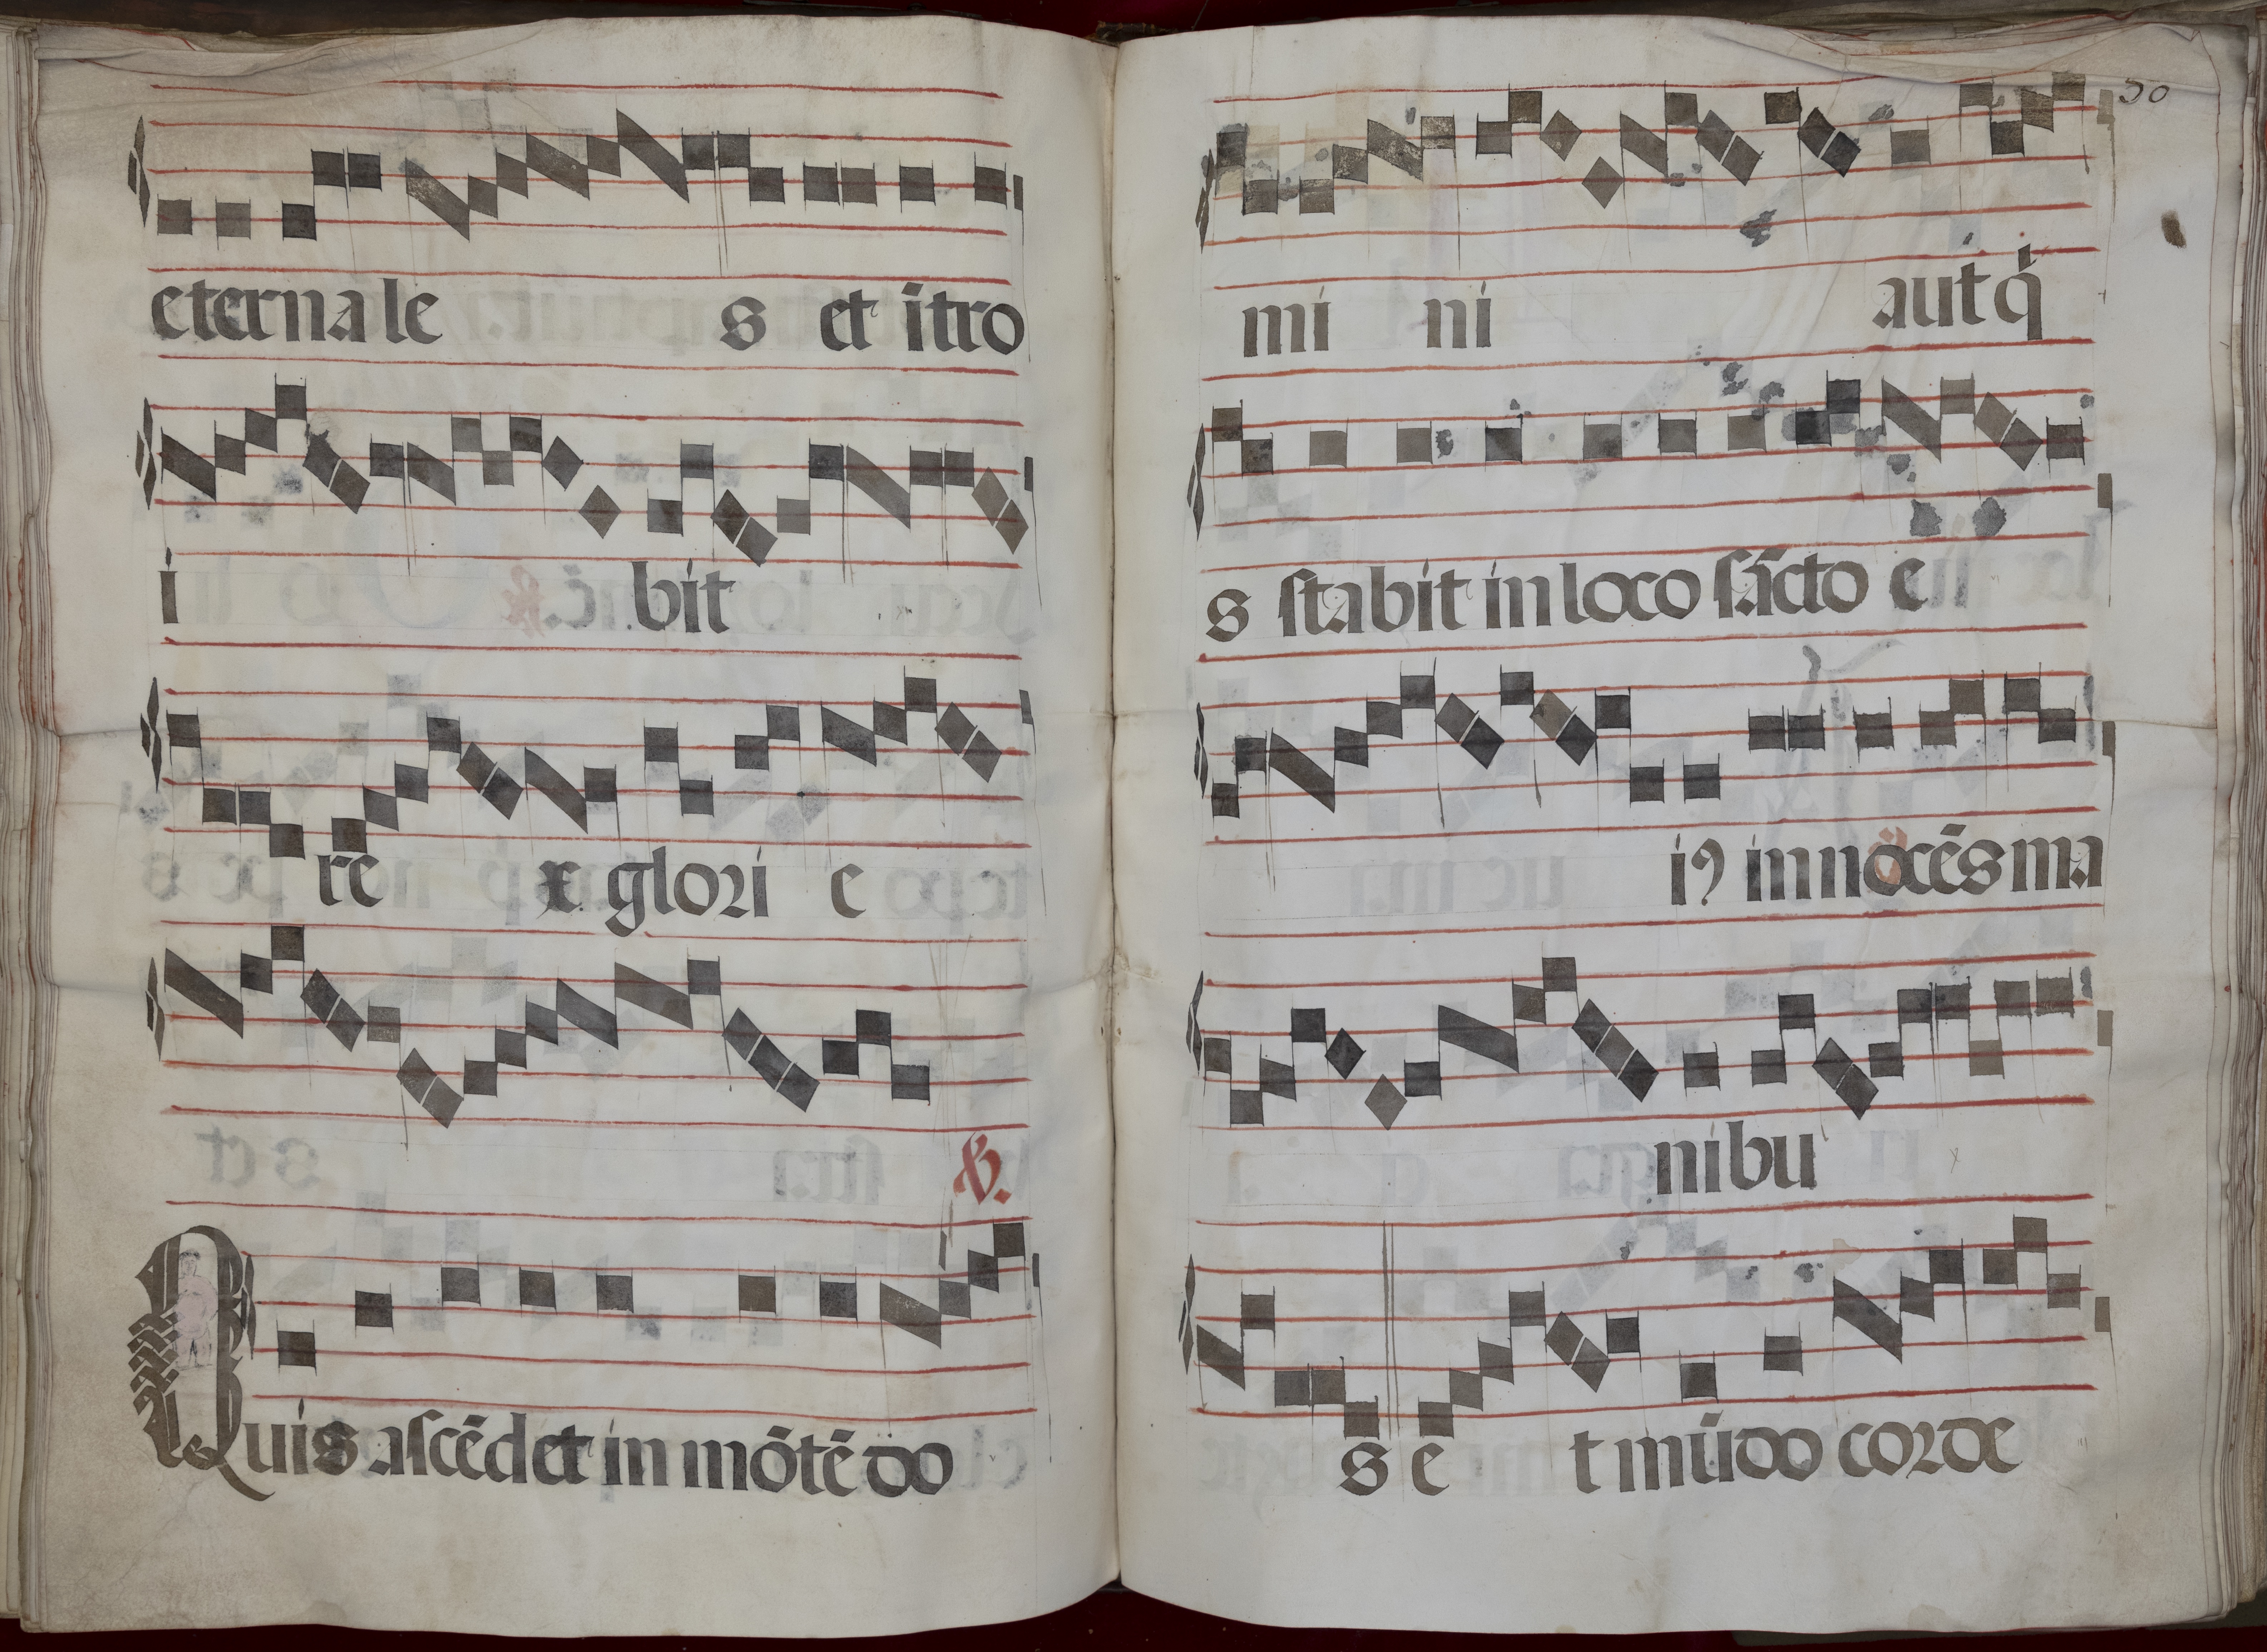 eternale s et ītro
i bit
rē x glori e
℣.
Quis ascēdet in mōtē do
50
mi ni aut q̇
s stabit in loco sācto e
iꝯ innocēs ma
nibu
s e t mūdo corde